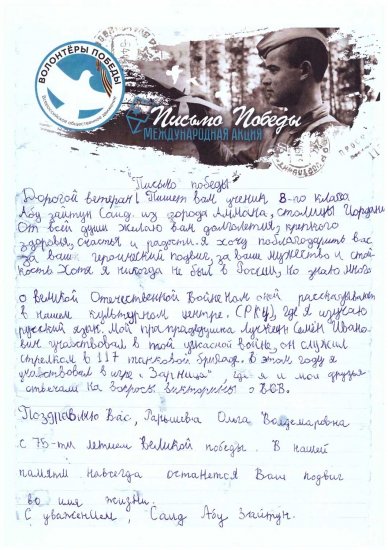 ВОЛОНТЁРЫ ПОБЕДЫ
Всероссийское общественное движение
Письмо Победы
МЕЖДУНАРОДНАЯ АКЦИЯ
"Письмо победы"
Дорогой ветеран! Пишет вам ученик 8-го класса
Абу Зайтун Саид. из города Аммана, столицы Иордани
От всей души желаю вам долголетия, крепкого
здоровья, счастья и радости. Я хочу поблагодарить вас
за ваш героический подвиг, за ваше мужество и стой-
кость Хотя я никогда не был в России, но знаю много
о великой Отечественной Войне Нам о ней рассказывают
в нашем культурном центре, (РЦКУ), где я изучаю
русский язык. Мой прапрадедушка Семён Ивано-
вич участвовал в этой ужасной войне, он служил
стрелком в 117 танковой бригаде. В этом году я
участвовал в игре "Зарница" где я и мои друзья
отвечали на вопросы викторины о ВОВ.
Поздравляю Вас, Ольга Вольдемаровна
с 75-ти летием Великой победы. В нашей
памяти навсегда останется Ваш подвиг
во имя жизни.
С уважением, Саид Абу Зайтун.